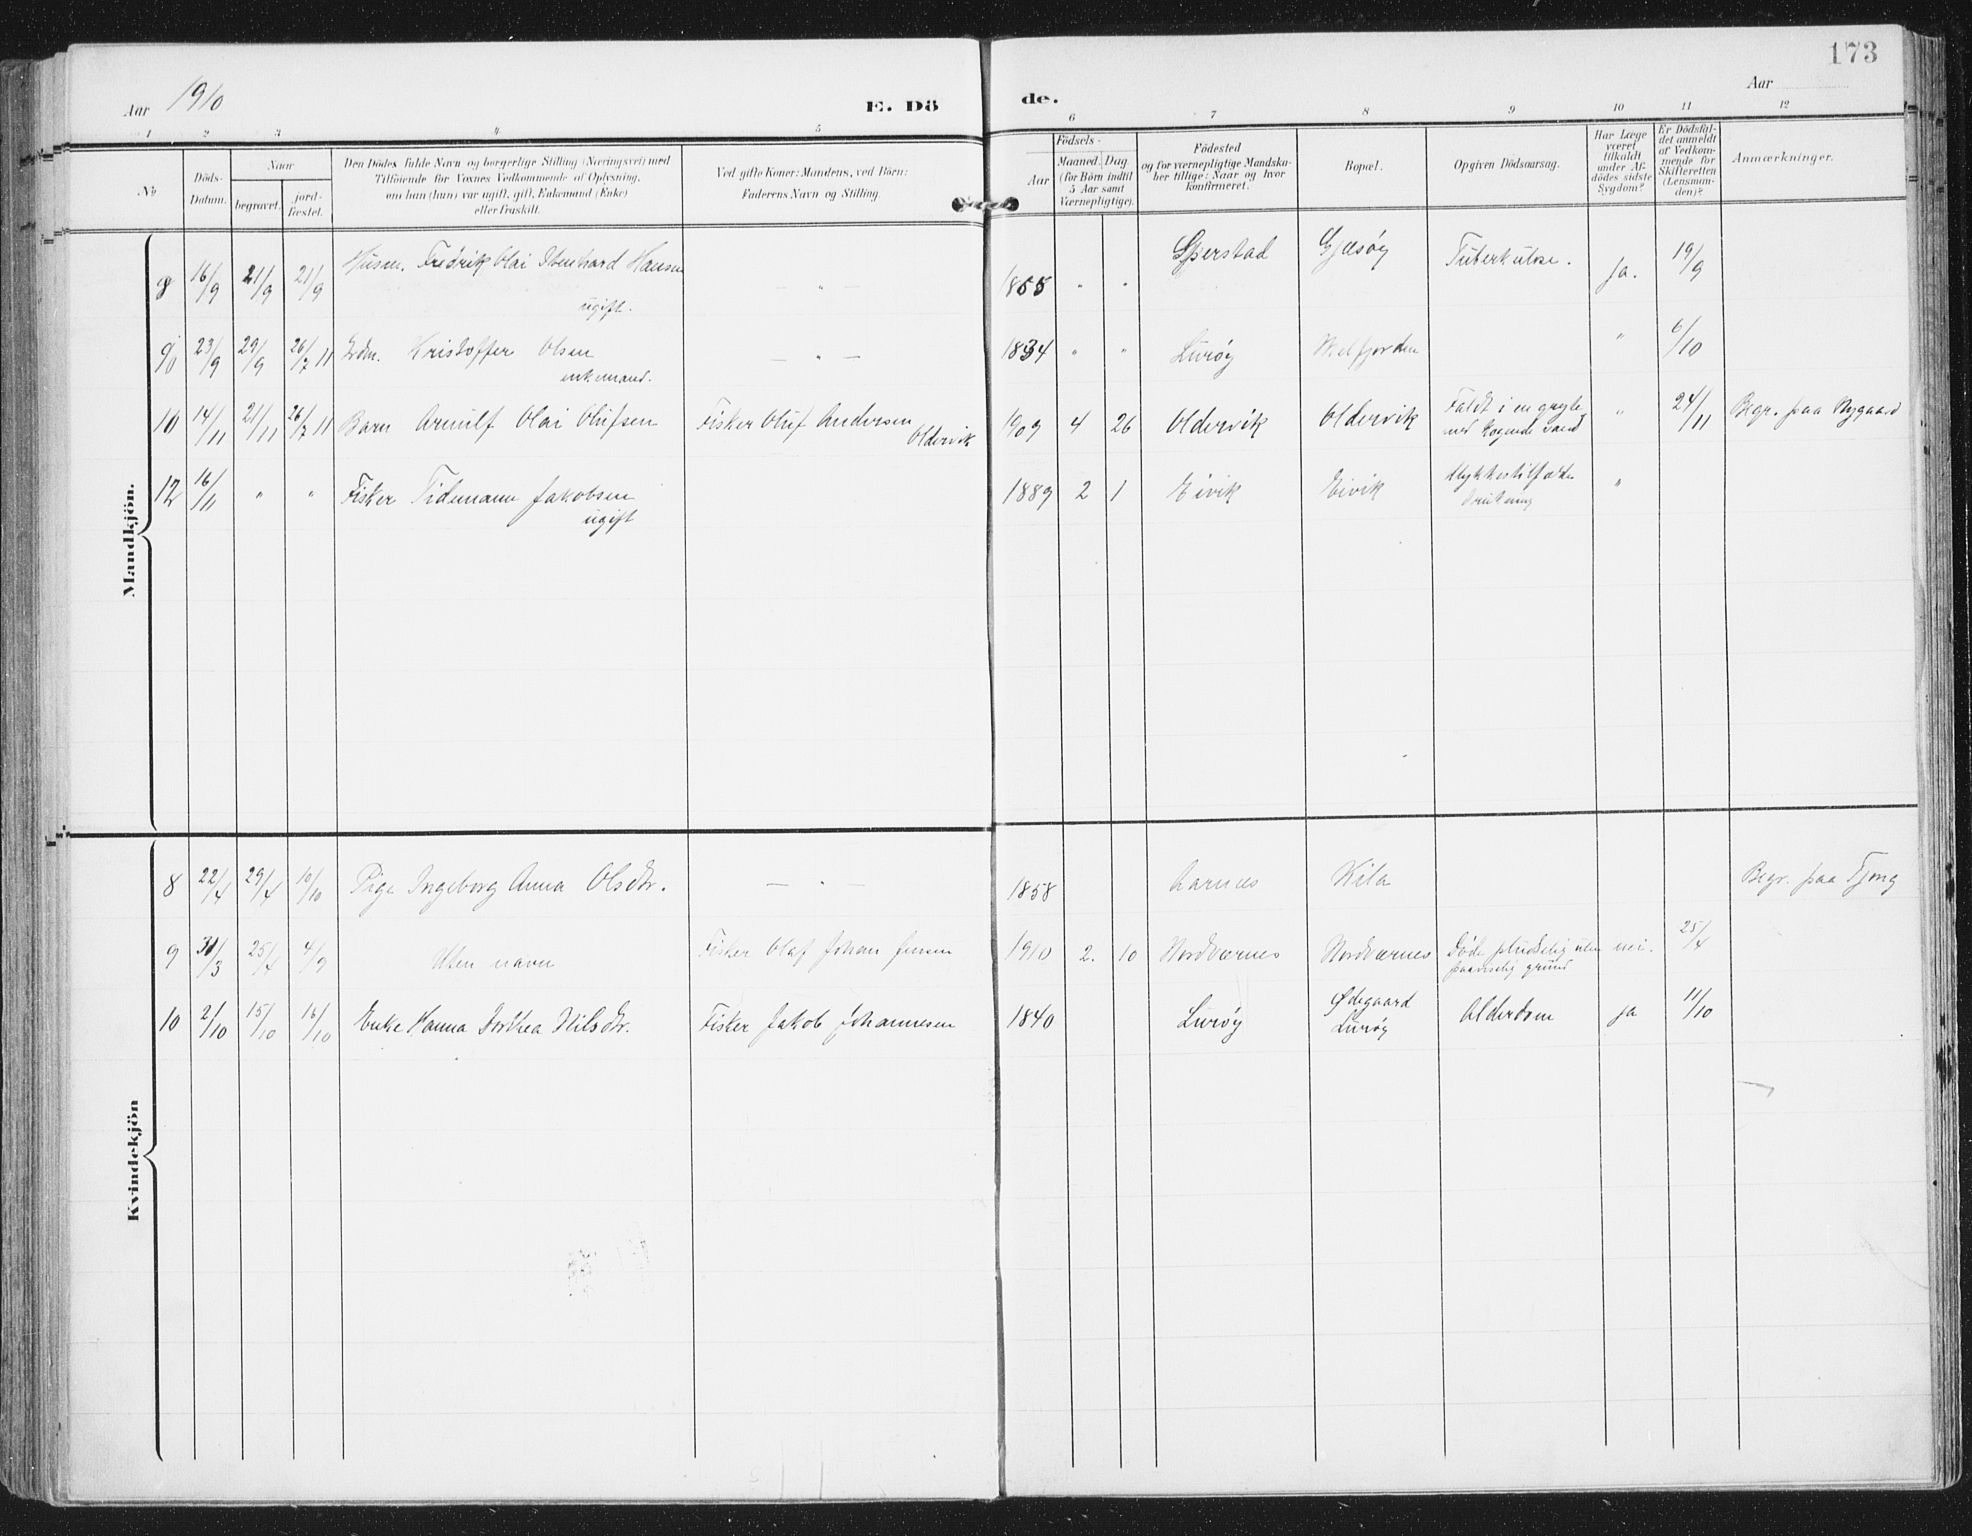 173
Aar 1910
E. Dö
de.
Aar
1 2 3 4 5 6 7 8 9 10 11 12
No
Döds-Datum.
Naar
begravet.
jord-fæstet.
Den Dödes fulde Navn og borgerlige Stilling (Næringsvei) med
Tilföiende for Voxnes Vedkommende af Oplysning,
om han (hun) var ugift, gift, Enkemand (Enke)
eller fraskilt.
Ved gifte Koner: Mandens, ved Börn:
Faderens Navn og Stilling.
Födsels-
Aar
Maaned. Dag
(for Börn indtil
5 Aar samt
Værnepligtige).
Födested
og for værnepligtige Mandska-
ber tillige: Naar og hvor
konfirmeret.
Bopæl.
Opgiven Dödsaarsag.
Har Læge
været
tilkaldt
under Af-
dödes sidste
Sygdom?
Er Dödsfal-
det anmeldt
af Vedkom-
mende for
Skifteretten
(Lensman-
den)?
Anmærkninger.
Mandkjön.
8 16/9 21/9 21/9 Husm. Fredrik Olai Hansen — " — 1855 " " Gjerstad Gjæsøy Tuberkulose. ja. 19/9
ugift.
9 23/9 29/9 26/7 11 Kristoffer Olsen — " — 1834 " " Lurøy Melfjorden " 6/10
enkemand.
10 14/11 21/11 26/7 11 Barn Arnulf Olai Olufsen Fisker Oluf Andersen 1909 4 26 Oldervik Oldervik Faldt i en gryte " 24/11 Begr. paa Nygaard
Oldervik med kogende vand
12 16/11 " " Fisker Tidemann Jakobsen 1889 2 1 Eivik Eivik Ulykkestilfælde "
ugift drukning
Kvindekjön
8 22/4 29/4 10/10 Pige Ingeborg Anna Olsdtr. — " — 1858 Aarnes Kila Begr. paa Tjong
9 31/3 25/4 4/9 Uten navn Fisker Olaf Johan Jensen 1910 2. 10 Nordværnes Nordværnes Døde pludselig uten nei. 25/4
paaviselig grund
10 2/10 15/10 16/10 Enke Hanna Dorthea Nilsdtr. Fisker Jakob Johannesen 1840 Lurøy Ødegaard Alderdom ja 11/10
Lurøy